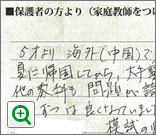 ■保護者の方より（家庭教師をつけ
5才より 海外(中国)で
夏に帰国してから、大手塾
他の教科も 問題が
ずつは良くなっていまし
模試の